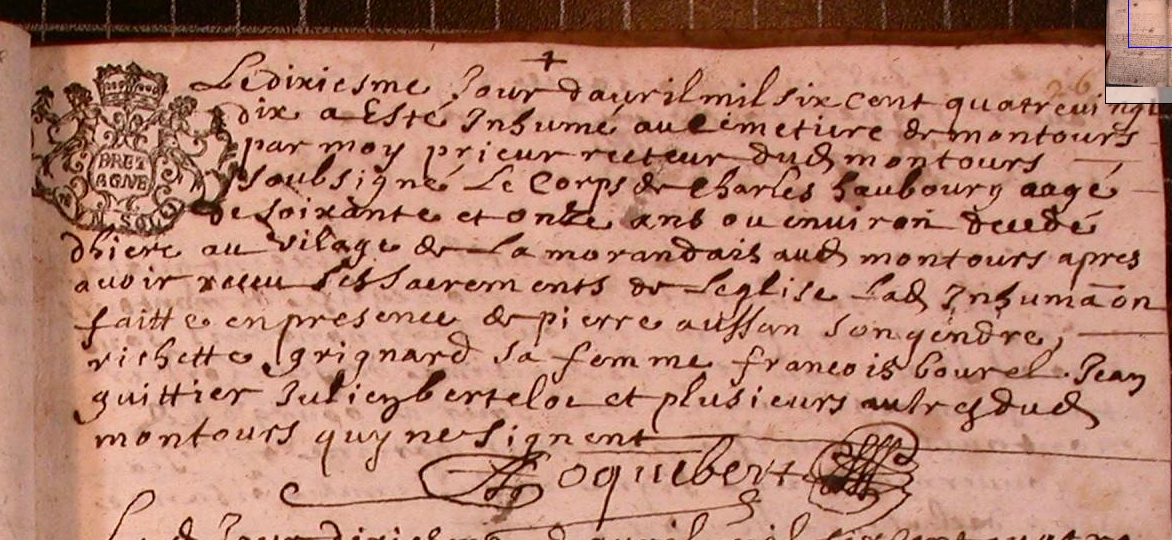 26
Le dixiesme Jour davril mil six cent quatrevingt
dix a Esté Inhumé au cemetiere de montours
par moy prieur recteur dud montours
BRET
AGNE
soubsigné Le Corps de Charles haubourg aagé
de soixante et onze ans ou environ decedé
dhiere au vilage de La morandais aud montours apres
avoir receu les sacrements de Leglise Lad Inhumaon
faitte en presence de pierre aussan son gendre,
richette grignard sa femme francois bourel. Jean
guittier Julien bertelot et plusieurs autres dud
montours quy ne signent
Coquebert
Led Jour dixiesme davril mil six cent quatre